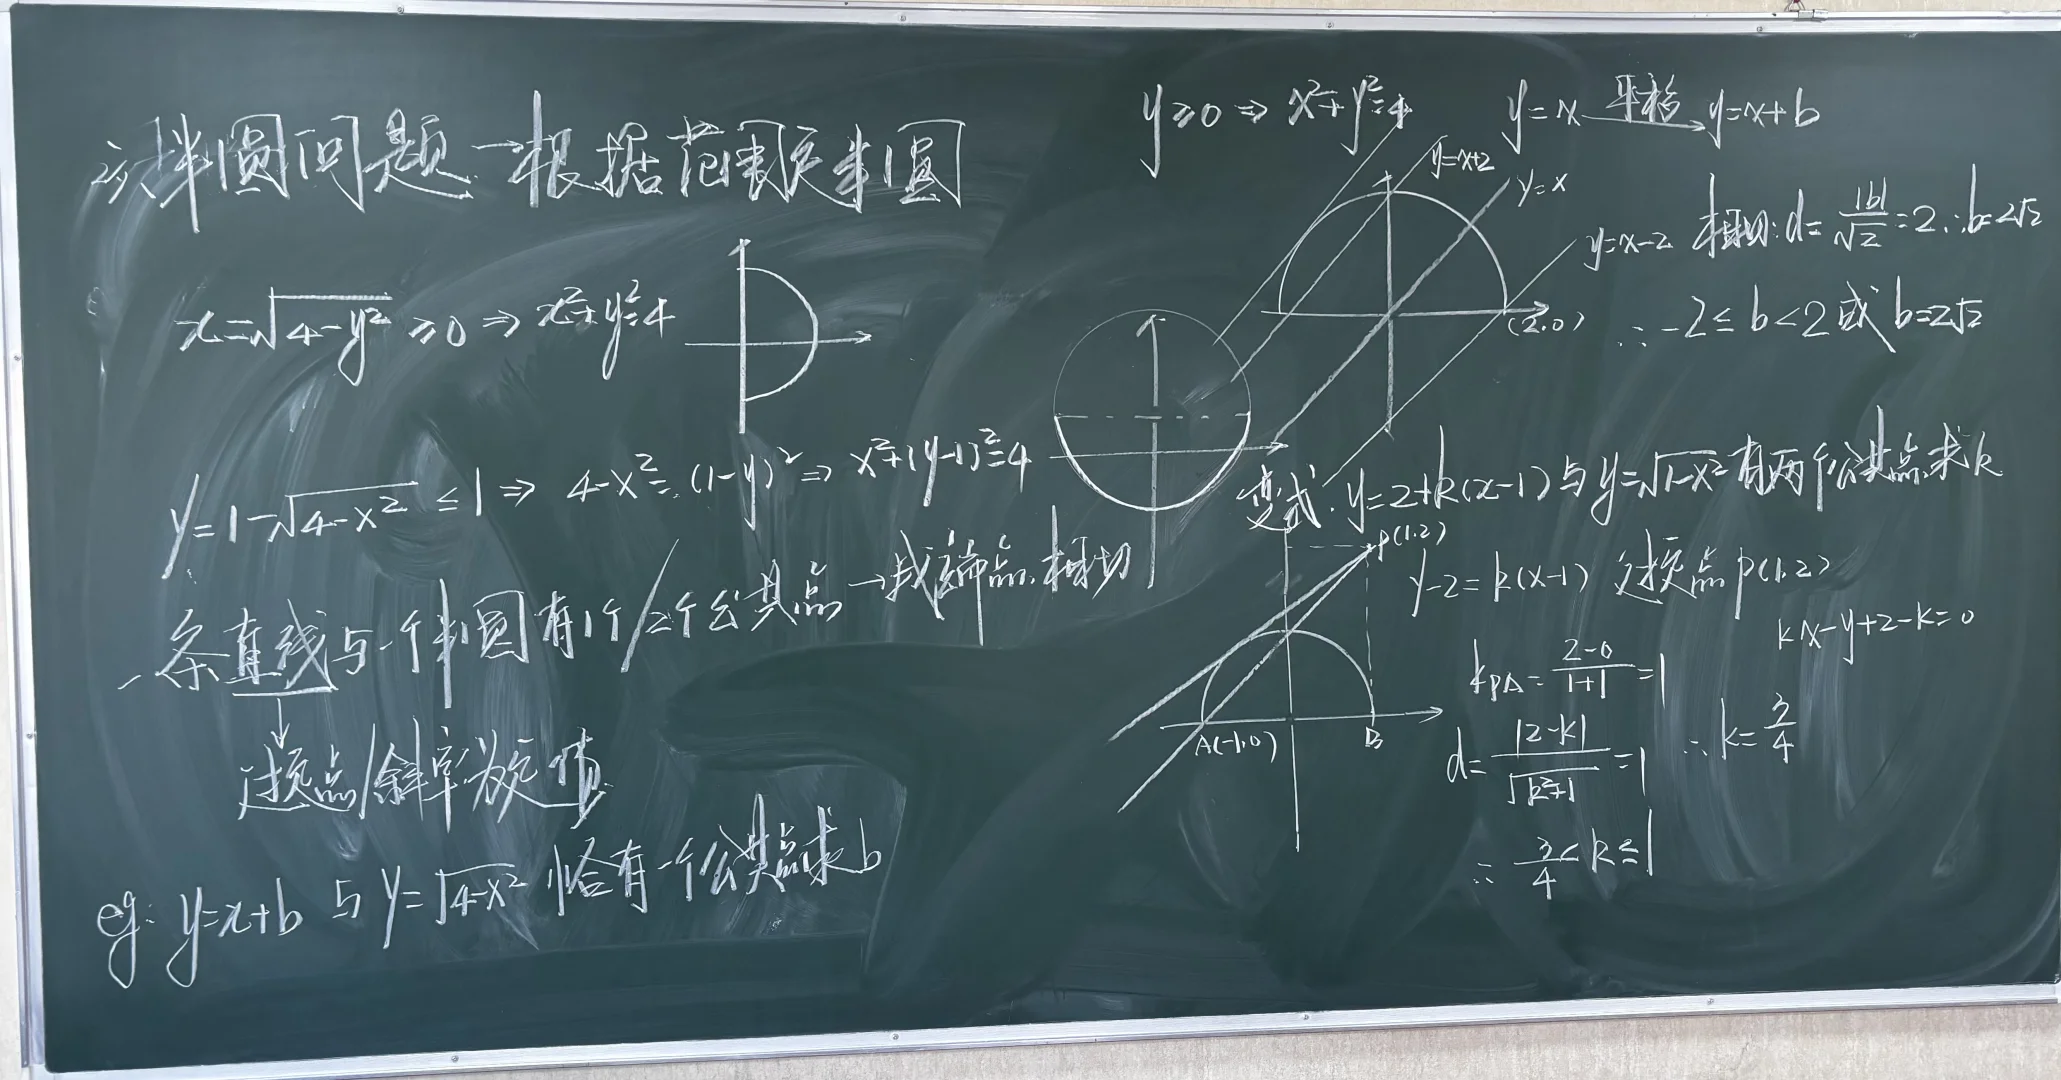 2>、半圆问题→根据范围定半圆
x=√(4-y²) ≥0 ⇒ x²+y²=4
y=1-√(4-x²) ≤1 ⇒ 4-x²=(1-y)² ⇒ x²+(y-1)²=4
一条直线与一个半圆有1个/2个公共点→找端点.相切
↓
过定点/斜率为定值
eg: y=x+b 与 y=√(4-x²) 恰有一个公共点求b
y≥0 ⇒ x²+y²=4
y=x 平移→ y=x+b
y=x+2
y=x
y=x-2
(2,0)
相切: d=|b|/√2=2 ∴b=2√2
∴ -2≤b<2或b=2√2
变式: y=2+k(x-1)与y=√(1-x²)有两个公共点求k
P(1,2)
A(-1,0)
B
y-2=k(x-1) 过定点P(1,2)
kx-y+2-k=0
k_PA=(2-0)/(1+1)=1
d=|2-k|/√(k²+1)=1 ∴k=3/4
∴ 3/4<k≤1